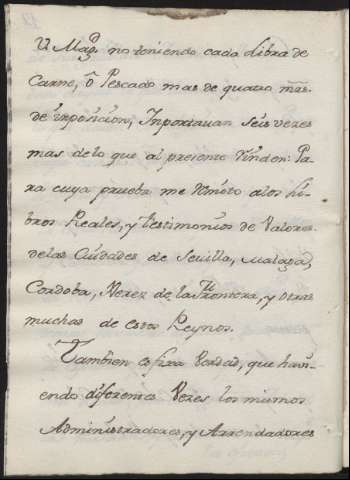 V Magd. no teniendo cada libra de
Carne, ô Pescado mas de quatro mrs.
de imposicion, Inportauan seis vezes
mas delo que al presente Rinden: Pa-
ra cuya prueba me Remito alos Li-
bros Reales, y testimonios de Valores
delas Ciudades de Sevilla, Malaga,
Cordoba, Xerez de la Frontera, y otras
muchas de estos Reynos.
Tambien es fixa Verdad, que havi-
endo diferentes Vezes los mismos
Administradores, y Arrendadores